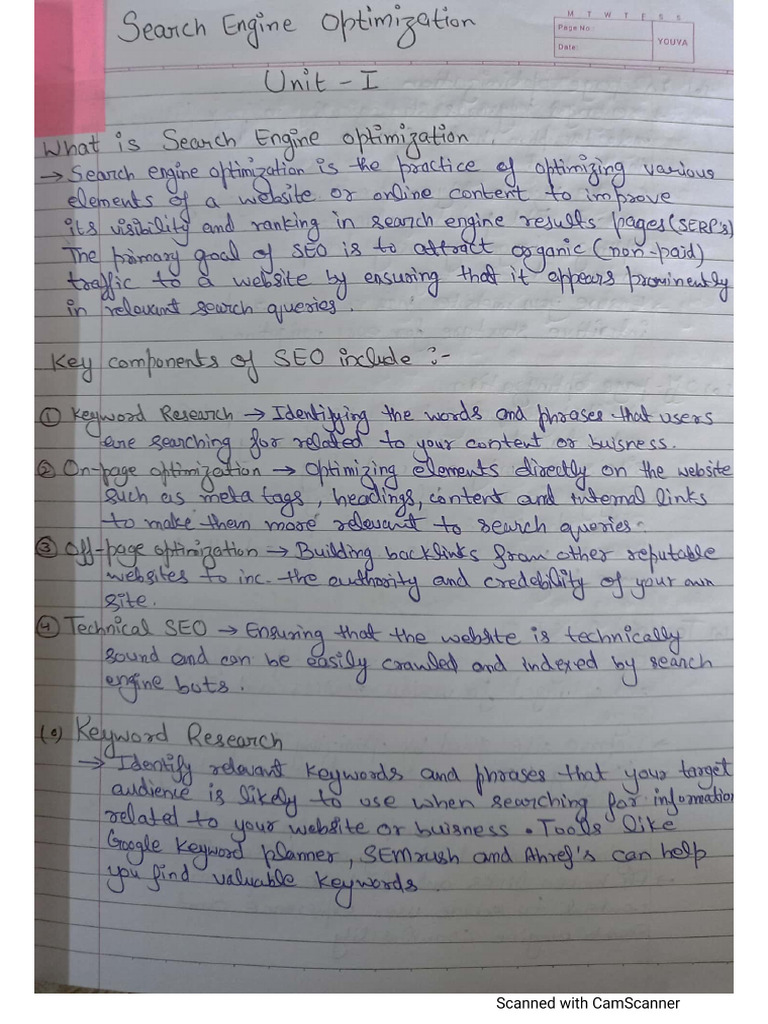 Search Engine Optimization
M T W T F S S
Page No:
Date:
YOUVA
Unit - I
What is Search Engine Optimization.
→ Search engine optimization is the practice of optimizing various
elements of a website or online content to improve
its visibility and ranking in search engine results pages (SERP's)
The primary goal of SEO is to attract organic (non-paid)
traffic to a website by ensuring that it appears prominently
in relevant search queries.
Key components of SEO include :-
① Keyword Research → Identifying the words and phrases that users
are searching for related to your content or buisness.
② On-page optimization → Optimizing elements directly on the website
such as meta tags, headings, content and internal links
to make them more relevant to search queries.
③ Off-page optimization → Building backlinks from other reputable
websites to inc. the authority and credebility of your own
site.
④ Technical SEO → Ensuring that the website is technically
sound and can be easily crawled and indexed by search
engine bots.
Keyword Research
→ Identify relevant keywords and phrases that your target
audience is likely to use when searching for information
related to your website or buisness. Tools like
Google Keyword planner, SEMrush and Ahref's can help
you find valuable keywords.
Scanned with CamScanner